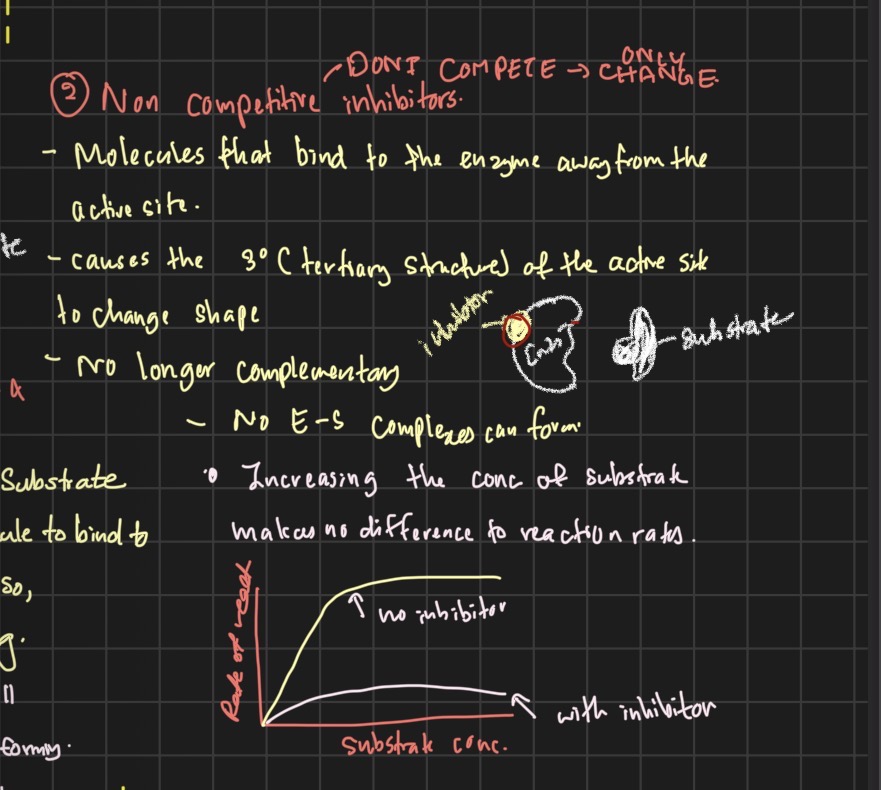 DON'T COMPETE → ONLY CHANGE.
② Non competitive inhibitors.
- Molecules that bind to the enzyme away from the
active site.
te
- causes the 3° (tertiary structure) of the active site
to change shape
inhibitor
substrate
- No longer complementary
a
- No E-S complexes can form.
Substrate
• Increasing the conc of substrate
ule to bind to
makes no difference to reaction rates.
so,
Rate of react
no inhibitor
g.
11
with inhibitor
forming.
substrate conc.